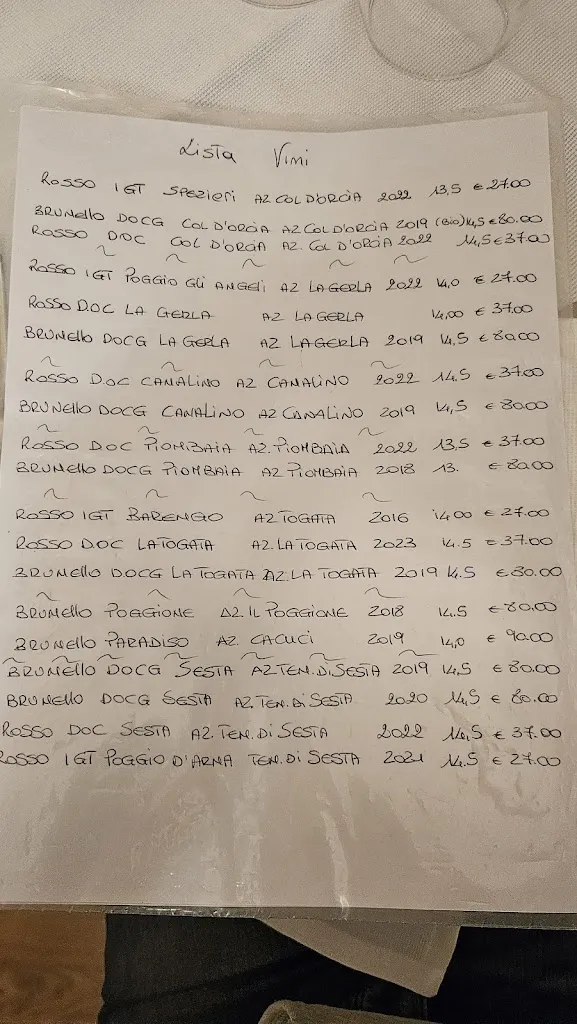 Lista Vini
ROSSO IGT SPEZIERI AZ COL D'ORCIA 2022 13,5 € 27.00
BRUNELLO DOCG COL D'ORCIA AZ COL D'ORCIA 2019 (BIO) 14,5 € 80.00
ROSSO DOC COL D'ORCIA AZ. COL D'ORCIA 2022 14,5 € 37.00
ROSSO IGT POGGIO GLI ANGELI AZ LA GERLA 2022 14,0 € 27.00
ROSSO DOC LA GERLA AZ LA GERLA 14,00 € 37.00
BRUNELLO DOCG LA GERLA AZ LA GERLA 2019 14,5 € 80.00
ROSSO D.OC CANALINO AZ CANALINO 2022 14.5 € 37.00
BRUNELLO DOCG CANALINO AZ CANALINO 2019 14,5 € 80.00
ROSSO DOC PIOMBAIA AZ. PIOMBAIA 2022 13.5 € 37.00
BRUNELLO DOCG PIOMBAIA AZ PIOMBAIA 2018 13. € 80.00
ROSSO IGT BARENGO AZ TOGATA 2016 14 00 € 27.00
ROSSO D.OC LA TOGATA AZ. LA TOGATA 2023 14.5 € 37.00
BRUNELLO DOCG LA TOGATA AZ LA TOGATA 2019 14.5 € 80.00
BRUNELLO POGGIONE AZ. IL POGGIONE 2018 14.5 € 80.00
BRUNELLO PARADISO AZ. CACUCI 2019 14,0 € 90.00
BRUNELLO DOCG SESTA AZ TEN. DI SESTA 2019 14,5 € 80.00
BRUNELLO DOCG SESTA AZ. TEN. DI SESTA 2020 14,5 € 80.00
ROSSO DOC SESTA AZ. TEN. DI SESTA 2022 14,5 € 37.00
ROSSO IGT POGGIO D'ARNA TEN. DI SESTA 2021 14.5 € 27.00